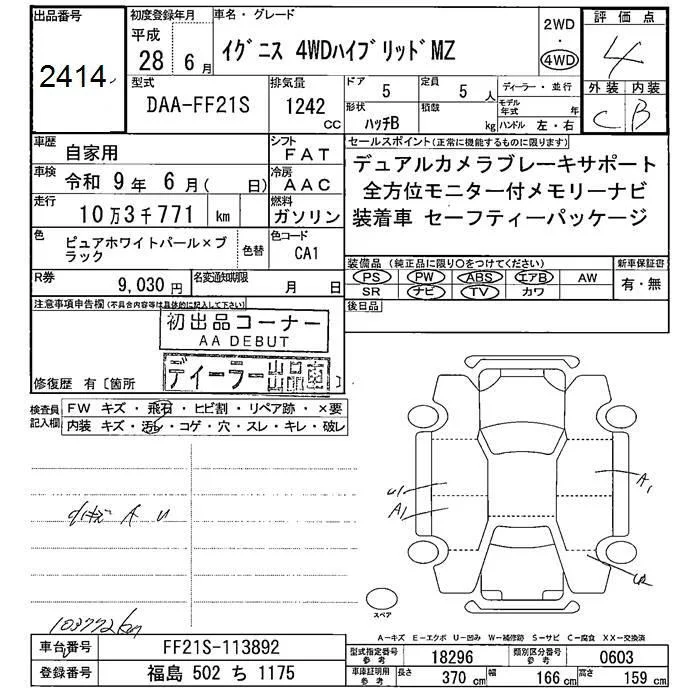 出品番号
2414
初度登録年月
平成
28年 6月
車名・グレード
イグニス 4WDハイブリッドMZ
2WD
・
4WD
評価点
4
外装 内装
C B
型式
DAA-FF21S
排気量
1242
CC
ドア
5
定員
5人
形状
ハッチB
積載
kg
ディーラー・並行
モデル年式 年
ハンドル 左・右
車歴
自家用
シフト
FAT
車検
令和 9年 6月( 日)
冷房
AAC
走行
10万3千771 km
燃料
ガソリン
色
ピュアホワイトパール×ブラック
色替
色コード
CA1
R券
9,030円
名変通知期限
月 日
セールスポイント(正常に機能するものに限ります)
デュアルカメラブレーキサポート
全方位モニター付メモリーナビ
装着車 セーフティーパッケージ
装備品(純正品に限り○をつけてください)
PS PW ABS エアB AW
SR ナビ TV カワ
新車保証書
有・無
後日品
注意事項申告欄(不具合内容等は具体的に記入して下さい)
初出品コーナー
AA DEBUT
ディーラー出品車
修復歴 有〔箇所 〕
検査員記入欄
FW キズ・飛石・ヒビ割・リペア跡・×要
内装 キズ・汚レ・コゲ・穴・スレ・キレ・破レ
A U
103772km
U1
A1
A1
スペア
A-キズ E-エクボ U-凹み W-補修跡 S-サビ C-腐食 XX-交換済
車台番号
FF21S-113892
登録番号
福島 502 ち 1175
型式指定番号
参考
18296
類別区分番号
参考
0603
車庫証明用
参考
長さ
370 cm
幅
166 cm
高さ
159 cm